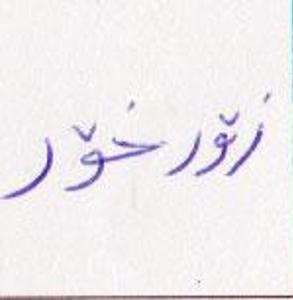 زۆر خۆر